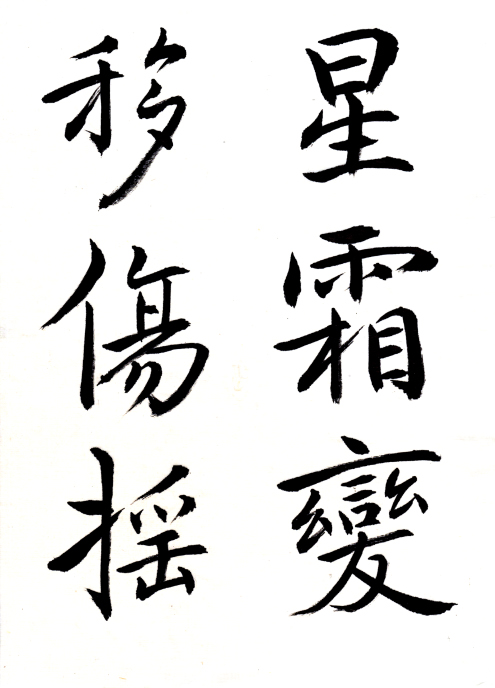 星霜變
移傷揺